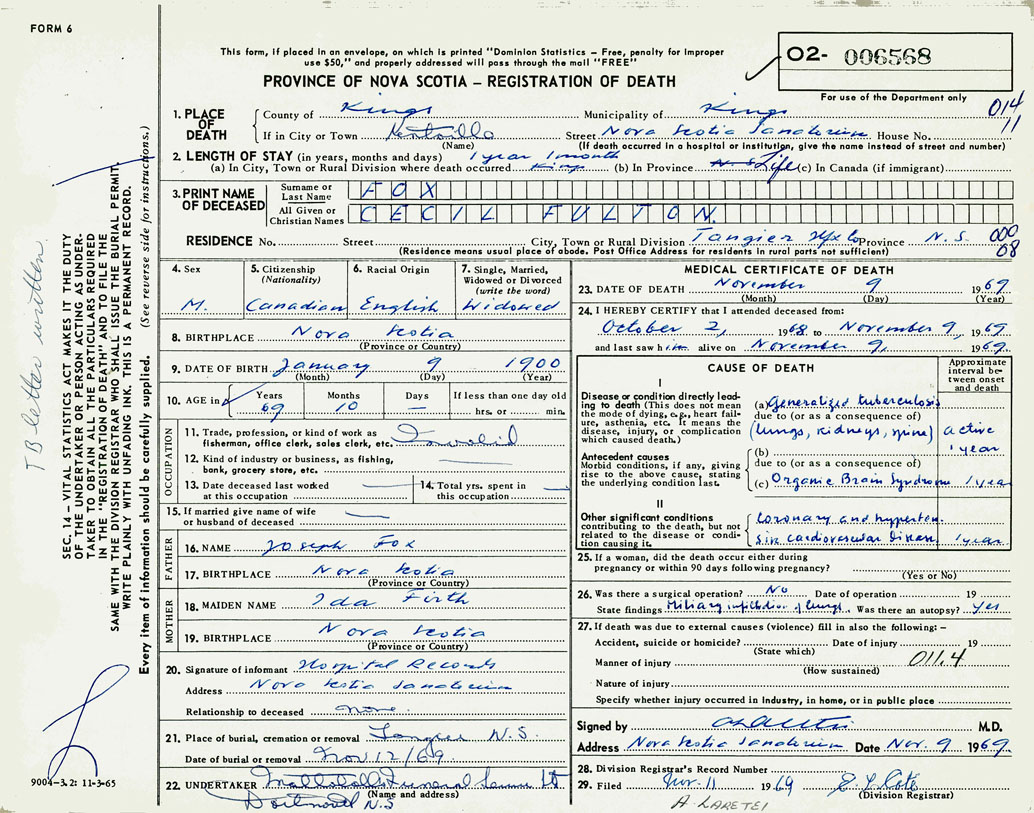 FORM 6
This form, if placed in an envelope, on which is printed "Dominion Statistics – Free, penalty for improper
use $50," and properly addressed will pass through the mail "FREE"
02- 006568
For use of the Department only
PROVINCE OF NOVA SCOTIA – REGISTRATION OF DEATH
014
11
1. PLACE OF DEATH
County of Kings Municipality of Kings
If in City or Town Kentville Street Nova Scotia Sanatorium House No.
(Name) (If death occurred in a hospital or institution, give the name instead of street and number)
2. LENGTH OF STAY (in years, months and days) 1 year 1 month
(a) In City, Town or Rural Division where death occurred Kings (b) In Province N S Life (c) In Canada (if immigrant)
3. PRINT NAME OF DECEASED
Surname or Last Name FOX
All Given or Christian Names CECIL FULTON.
RESIDENCE No. Street City, Town or Rural Division Tangier Hfx Co Province N.S. 000
(Residence means usual place of abode. Post Office Address for residents in rural parts not sufficient) 08
4. Sex M.
5. Citizenship (Nationality) Canadian
6. Racial Origin English
7. Single, Married, Widowed or Divorced (write the word) Widowed
8. BIRTHPLACE Nova Scotia
(Province or Country)
9. DATE OF BIRTH January 9 1900
(Month) (Day) (Year)
10. AGE in Years 69 Months 10 Days – If less than one day old hrs. or min.
OCCUPATION
11. Trade, profession, or kind of work as fisherman, office clerk, sales clerk, etc. Invalid
12. Kind of industry or business, as fishing, bank, grocery store, etc.
13. Date deceased last worked at this occupation
14. Total yrs. spent in this occupation
15. If married give name of wife or husband of deceased
FATHER
16. NAME Joseph Fox
17. BIRTHPLACE Nova Scotia
(Province or Country)
MOTHER
18. MAIDEN NAME Ida Firth
19. BIRTHPLACE Nova Scotia
(Province or Country)
20. Signature of informant Hospital Records
Address Nova Scotia Sanatorium
Relationship to deceased none.
21. Place of burial, cremation or removal Tangier N.S.
Date of burial or removal Nov 12/69
22. UNDERTAKER Funeral
(Name and address)
N.S
MEDICAL CERTIFICATE OF DEATH
23. DATE OF DEATH November 9 1969
(Month) (Day) (Year)
24. I HEREBY CERTIFY that I attended deceased from:
October 2, 1968 to November 9, 1969
and last saw him alive on November 9, 1969.
CAUSE OF DEATH
Approximate interval between onset and death
I
Disease or condition directly leading to death (This does not mean the mode of dying, e.g., heart failure, asthenia, etc. It means the disease, injury, or complication which caused death.)
(a) Generalized tuberculosis
due to (or as a consequence of)
(lungs, kidneys, spine) active
1 year
Antecedent causes
Morbid conditions, if any, giving rise to the above cause, stating the underlying condition last.
(b)
due to (or as a consequence of)
(c) Organic Brain Syndrome 1 year
II
Other significant conditions contributing to the death, but not related to the disease or condition causing it.
Coronary and hyperten-
sive cardiovascular disease 1 year.
25. If a woman, did the death occur either during pregnancy or within 90 days following pregnancy?
(Yes or No)
26. Was there a surgical operation? No Date of operation 19
State findings Miliary of lungs Was there an autopsy? Yes
27. If death was due to external causes (violence) fill in also the following: –
Accident, suicide or homicide? Date of injury 19
(State which)
Manner of injury 011.4
(How sustained)
Nature of injury
Specify whether injury occurred in industry, in home, or in public place
Signed by M.D.
Address Nova Scotia Sanatorium Date Nov. 9 1969
28. Division Registrar's Record Number
29. Filed Nov. 11 1969
(Division Registrar)
A LARETEI
SEC. 14 – VITAL STATISTICS ACT MAKES IT THE DUTY
OF THE UNDERTAKER OR PERSON ACTING AS UNDER-
TAKER TO OBTAIN ALL THE PARTICULARS REQUIRED
IN THE "REGISTRATION OF DEATH" AND TO FILE THE
SAME WITH THE DIVISION REGISTRAR WHO SHALL ISSUE THE BURIAL PERMIT.
WRITE PLAINLY WITH UNFADING INK. THIS IS A PERMANENT RECORD.
Every item of information should be carefully supplied. (See reverse side for instructions.)
TB letter written
9004-3.2: 11-3-65